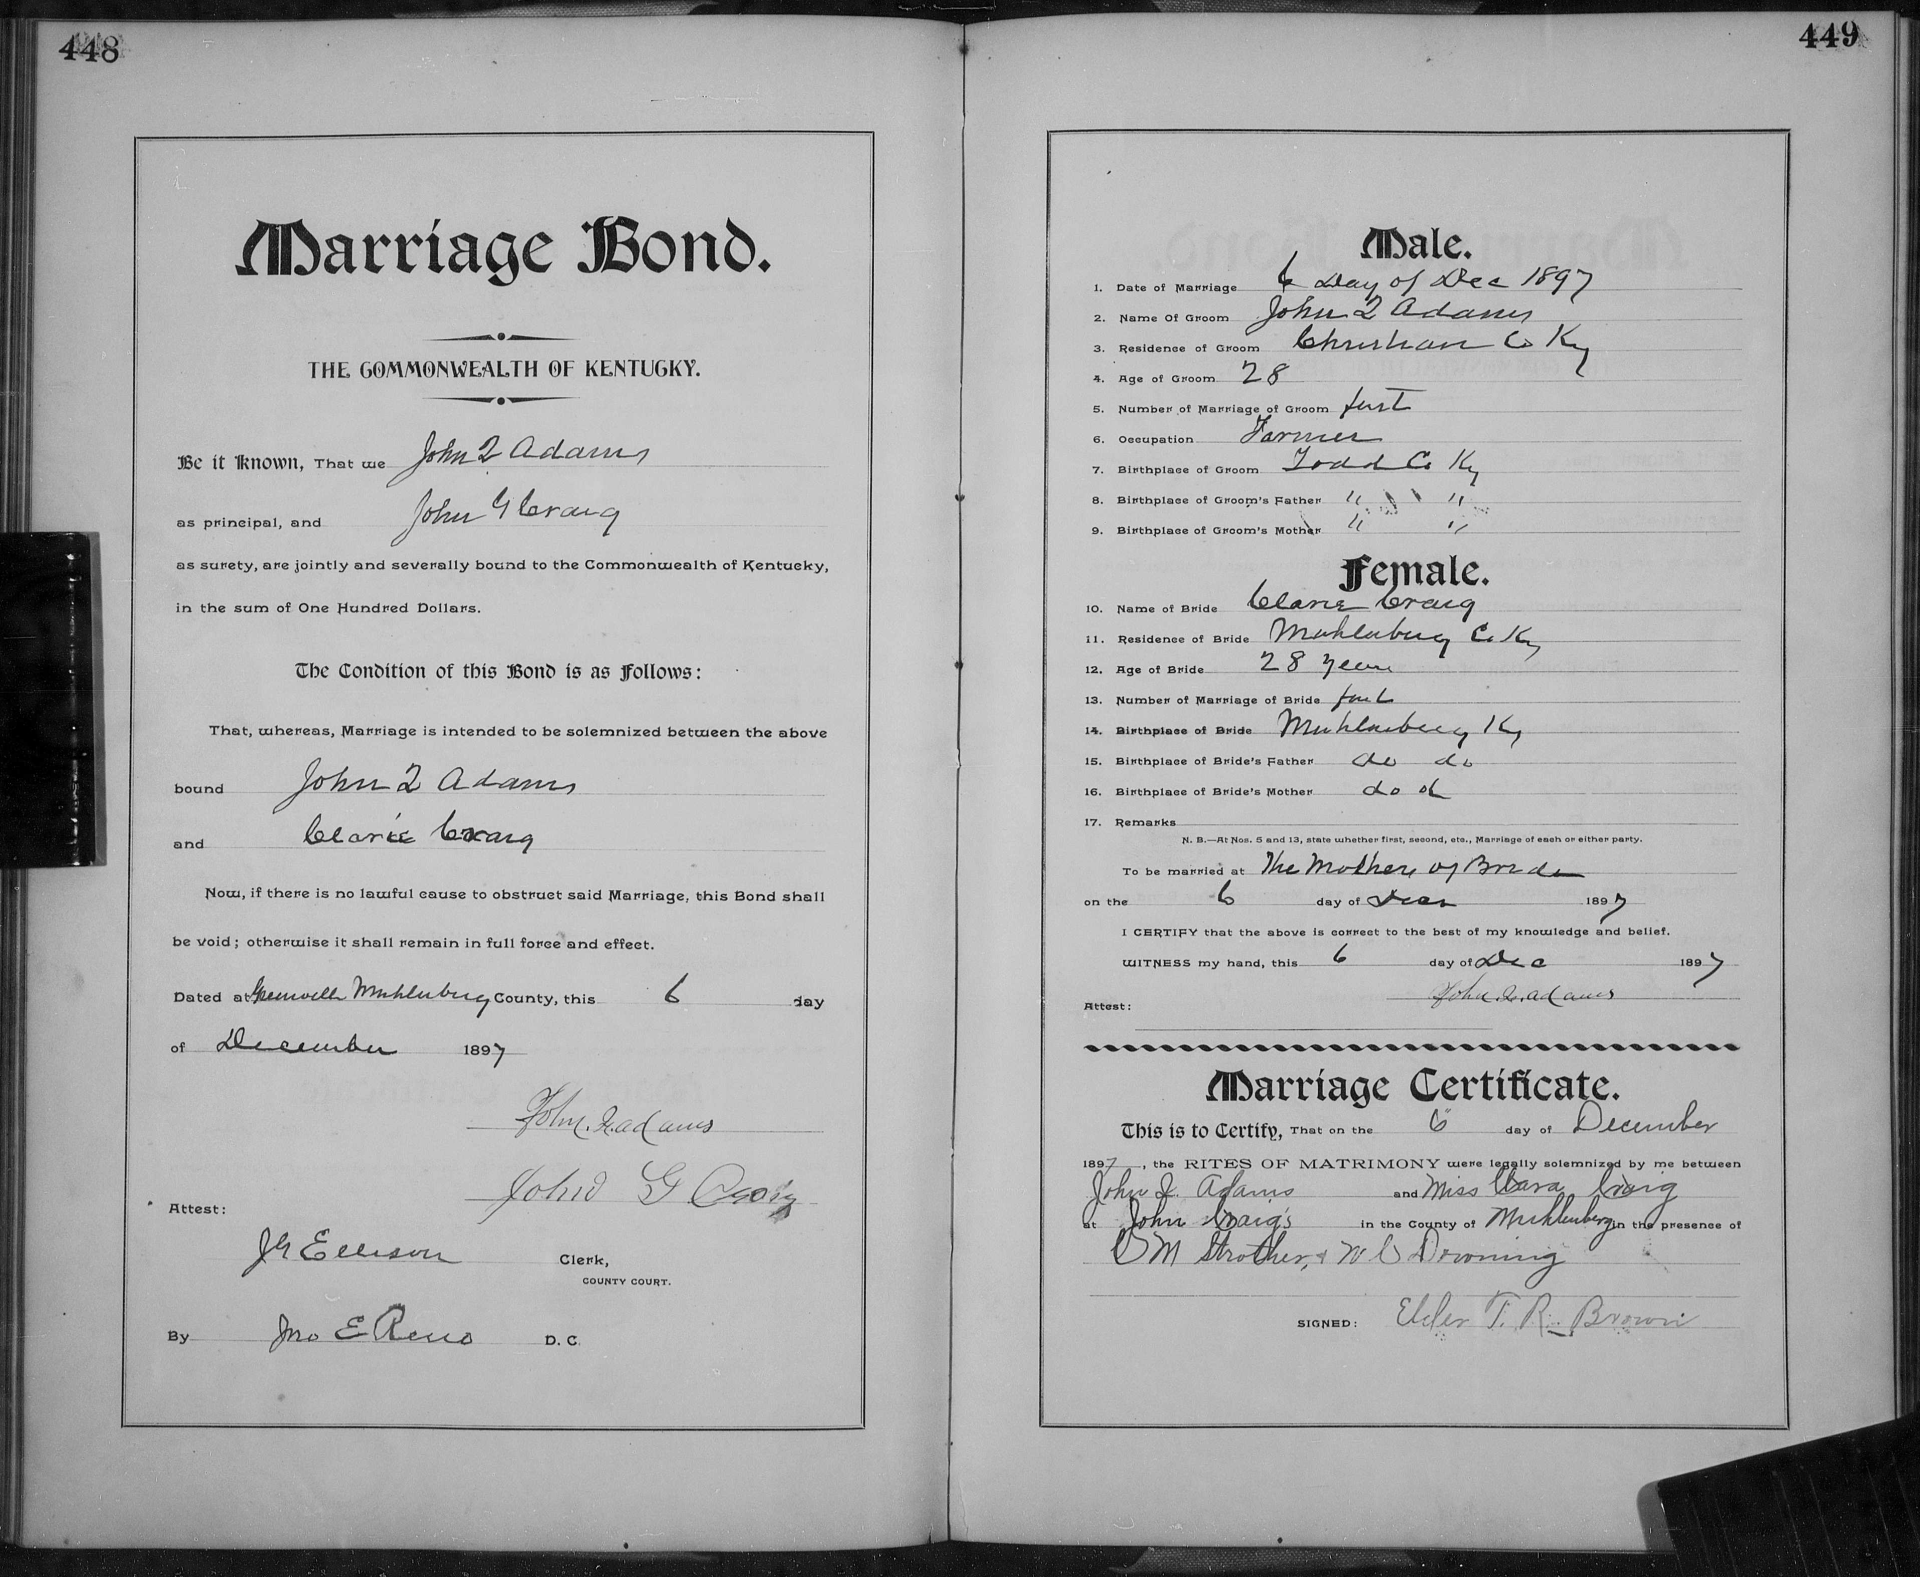 448
Marriage Bond.
THE COMMONWEALTH OF KENTUCKY.
Be it Known, That we John Q Adams
as principal, and John G Craig
as surety, are jointly and severally bound to the Commonwealth of Kentucky,
in the sum of One Hundred Dollars.
The Condition of this Bond is as Follows:
That, whereas, Marriage is intended to be solemnized between the above
bound John Q Adams
and Clarie Craig
Now, if there is no lawful cause to obstruct said Marriage, this Bond shall
be void; otherwise it shall remain in full force and effect.
Dated at Greenville Muhlenberg County, this 6 day
of December 1897
John. Q. adams
John G Craig
Attest:
Ellison Clerk,
COUNTY COURT.
By Jno E Reno D. C.
449
Male.
1. Date of Marriage 6 Day of Dec 1897
2. Name Of Groom John Q Adams
3. Residence of Groom Christian Co Ky
4. Age of Groom 28
5. Number of Marriage of Groom first
6. Occupation Farmer
7. Birthplace of Groom Todd Co Ky
8. Birthplace of Groom's Father " "
9. Birthplace of Groom's Mother " "
Female.
10. Name of Bride Clarie Craig
11. Residence of Bride Muhlenberg Co Ky
12. Age of Bride 28 years
13. Number of Marriage of Bride first
14. Birthplace of Bride Muhlenberg Ky
15. Birthplace of Bride's Father do do
16. Birthplace of Bride's Mother do do
17. Remarks
N. B.—At Nos. 5 and 13, state whether first, second, etc., Marriage of each or either party.
To be married at The Mothers of Bride
on the 6 day of Dec 1897
I CERTIFY that the above is correct to the best of my knowledge and belief.
WITNESS my hand, this 6 day of Dec 1897
John. Q. adams
Attest:
Marriage Certificate.
This is to Certify, That on the 6 day of December
1897, the RITES OF MATRIMONY were legally solemnized by me between
John Q. Adams and Miss Clara Craig
at John Craig's in the County of Muhlenberg in the presence of
C M Strother, & W C Downing
SIGNED: Elder T. R. Brown